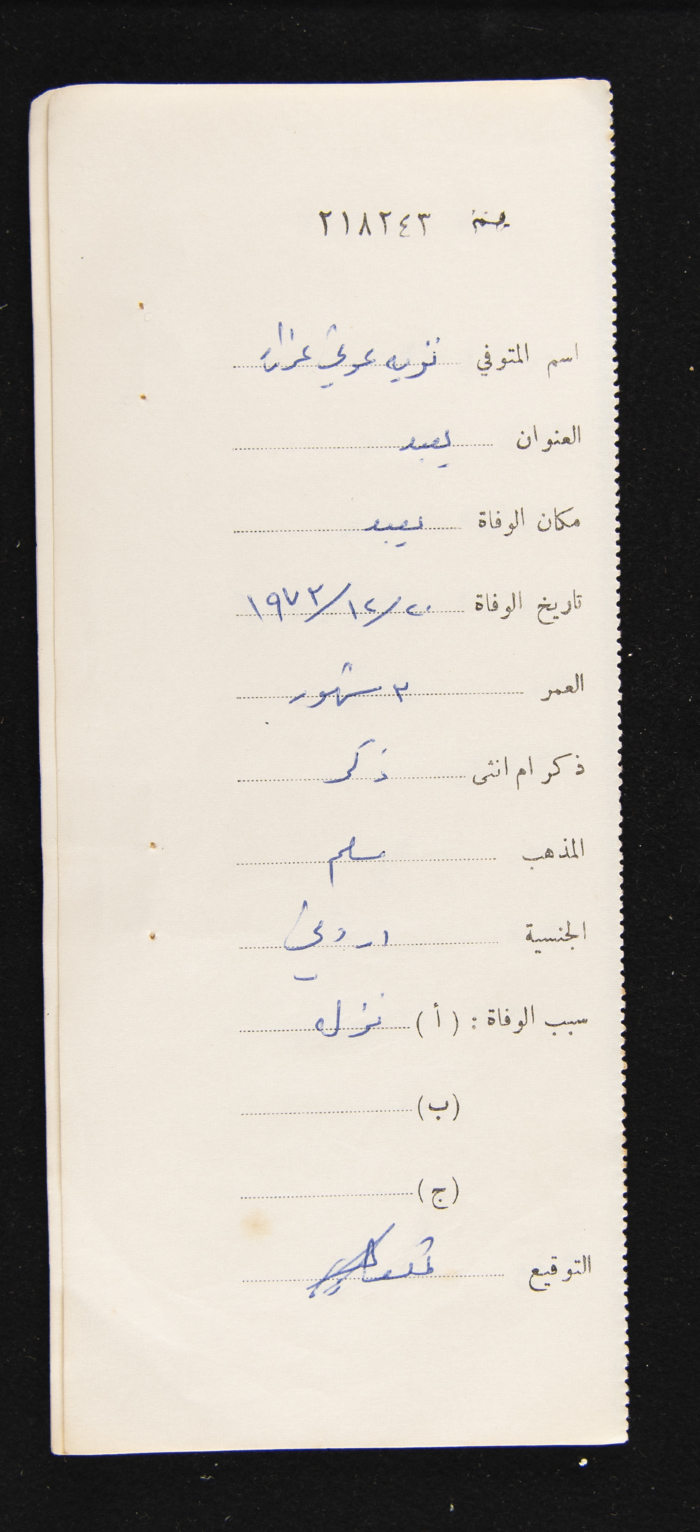 نمرة ٢١٨٢٤٣
اسم المتوفي نزيه عوني عزار
العنوان يعبد
مكان الوفاة يعبد
تاريخ الوفاة ٢٠/١٢/١٩٧٣
العمر ٣ شهور
ذكر ام انثى ذكر
المذهب مسلم
الجنسية اردني
سبب الوفاة : (أ) نزل
(ب)
(ج)
التوقيع